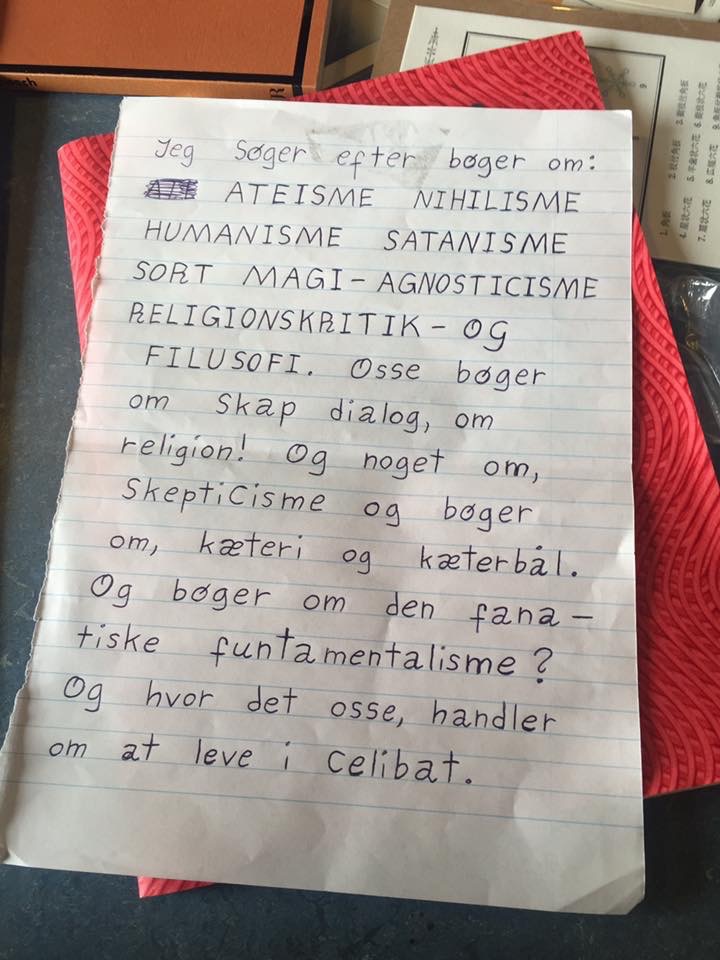 Jeg Søger efter bøger om:
ATEISME NIHILISME
HUMANISME SATANISME
SORT MAGI - AGNOSTICISME
RELIGIONSKRITIK - OG
FILUSOFI. Osse bøger
om Skap dialog, om
religion! Og noget om,
SkeptiCisme og bøger
om, kæteri og kæterbål.
Og bøger om den fana-
tiske funtamentalisme?
Og hvor det osse, handler
om at leve i Celibat.